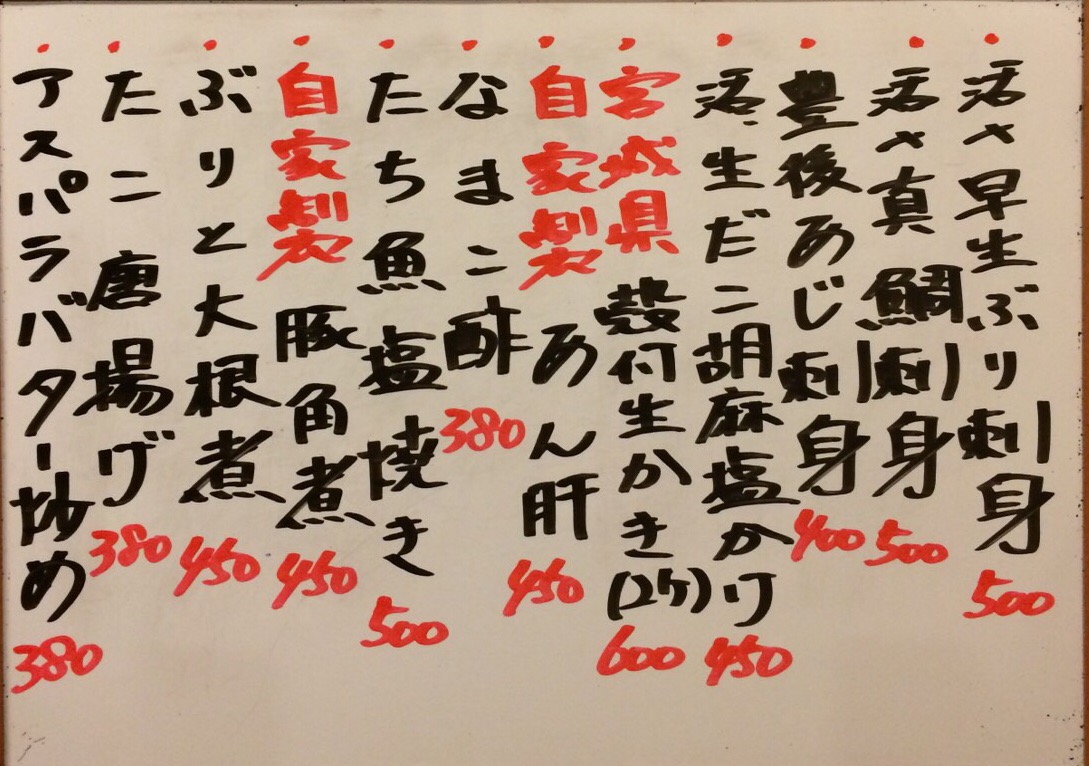 ・活〆早生ぶり刺身 500
・活〆真鯛刺身 500
・豊後あじ刺身 400
・活生だこ胡麻塩かけ 450
・宮城県殻付生かき(2ケ) 600
・自家製あん肝 450
・なまこ酢 380
・たち魚塩焼き 500
・自家製豚角煮 450
・ぶりと大根煮 450
・たこ唐揚げ 380
・アスパラバター炒め 380